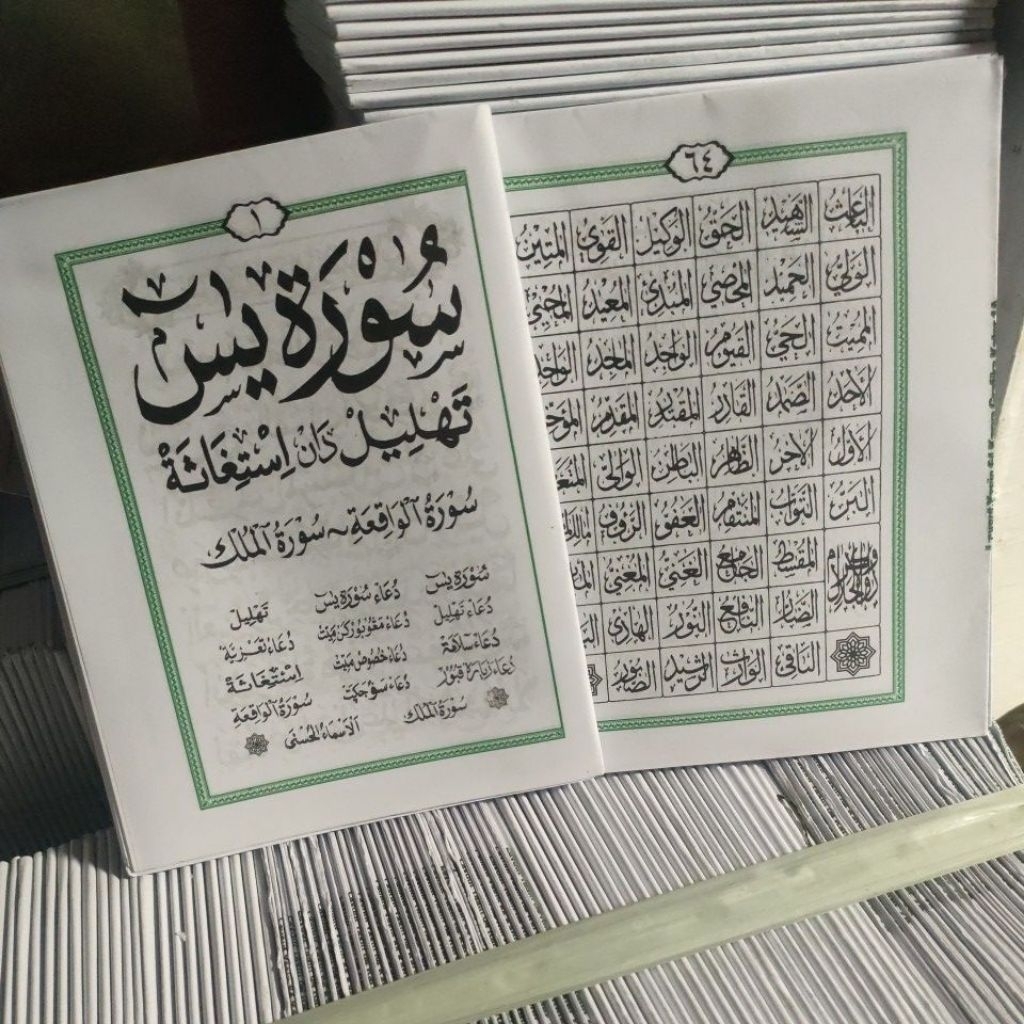 ١
سُوْرَة يٰسٓ
تَهْلِيْل دَانْ اِسْتِغَاثَةْ
سُوْرَةُ ٱلْوَاقِعَةِ ~ سُوْرَةُ ٱلْمُلْك
سُوْرَة يٰسٓ دُعَاء سُوْرَة يٰسٓ تَهْلِيْل
دُعَاء تَهْلِيْل دُعَاء
دُعَاء سَلَامَة دُعَاء خُصُوْص مَيِّتْ دُعَاء تَعْزِيَة
دُعَاء زِيَارَة قُبُوْر دُعَاء اِسْتِغَاثَة
سُوْرَةُ ٱلْمُلْك سُوْرَةُ ٱلْوَاقِعَة
اَلْاَسْمَاءُ الْحُسْنٰى
٦٤
الْبَاعِثُ الشَّهِيْدُ الْحَقُّ الْوَكِيْلُ الْقَوِيُّ الْمَتِيْنُ
الْوَلِيُّ الْحَمِيْدُ الْمُحْصِي الْمُبْدِئُ الْمُعِيْدُ الْمُحْيِي
الْمُمِيْتُ الْحَيُّ الْقَيُّوْمُ الْوَاجِدُ الْمَاجِدُ الْوَاحِدُ
الْاَحَدُ الصَّمَدُ الْقَادِرُ الْمُقْتَدِرُ الْمُقَدِّمُ
الْاَوَّلُ الْاٰخِرُ الظَّاهِرُ الْبَاطِنُ الْوَالِي
الْبَرُّ التَّوَّابُ الْمُنْتَقِمُ الْعَفُوُّ الرَّؤُوْفُ
ذُوالْجَلَالِ وَالْاِكْرَامِ الْمُقْسِطُ الْجَامِعُ الْغَنِيُّ الْمُغْنِي
الضَّارُّ النَّافِعُ النُّوْرُ الْهَادِي
الْبَاقِي الْوَارِثُ الرَّشِيْدُ الصَّبُوْرُ